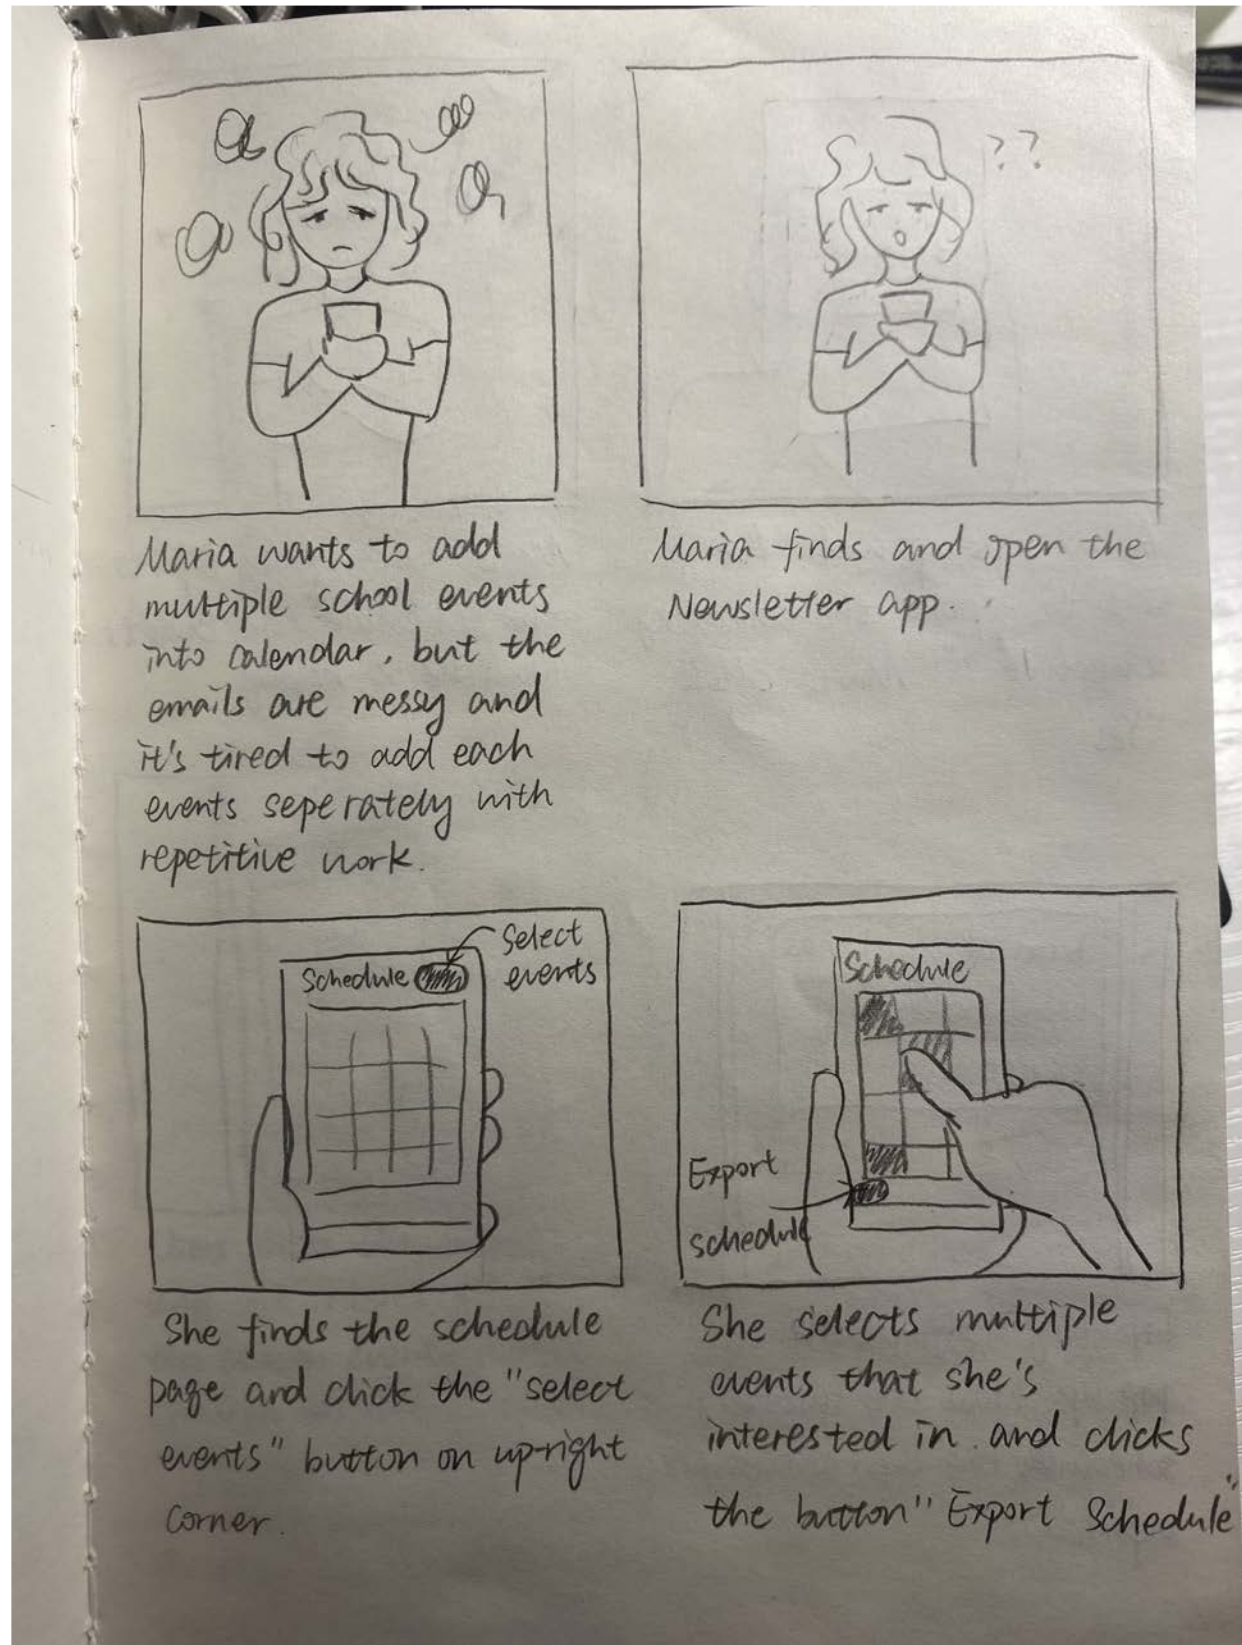 ??
Maria wants to add
multiple school events
into calendar, but the
emails are messy and
it's tired to add each
events seperately with
repetitive work.
Maria finds and open the
Newsletter app.
Schedule
Select
events
She finds the schedule
page and click the "select
events" button on up-right
corner.
Schedule
Export
schedule
She selects multiple
events that she's
interested in and clicks
the button "Export Schedule"